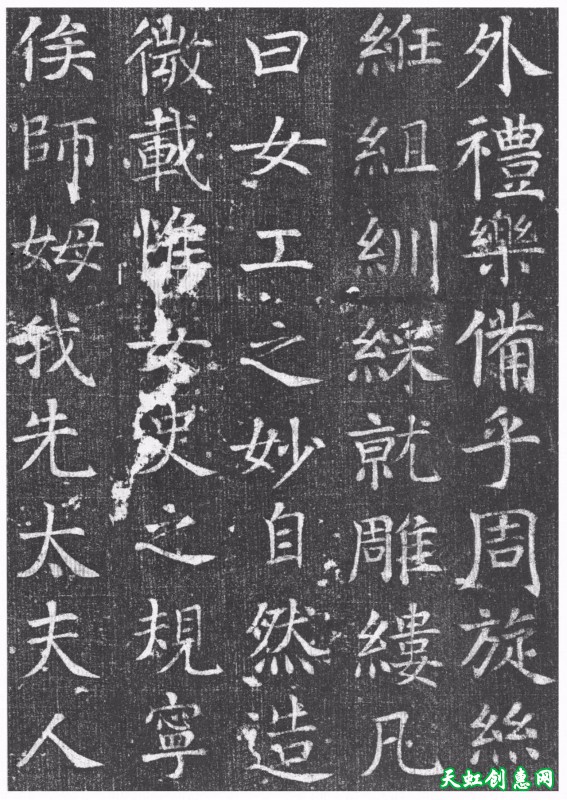 外禮樂備乎周旋絲
紝組紃綵就雕縷凡
曰女工之妙自然造
微載惟女史之規寧
俟師姆我先太夫人
天虹创惠网